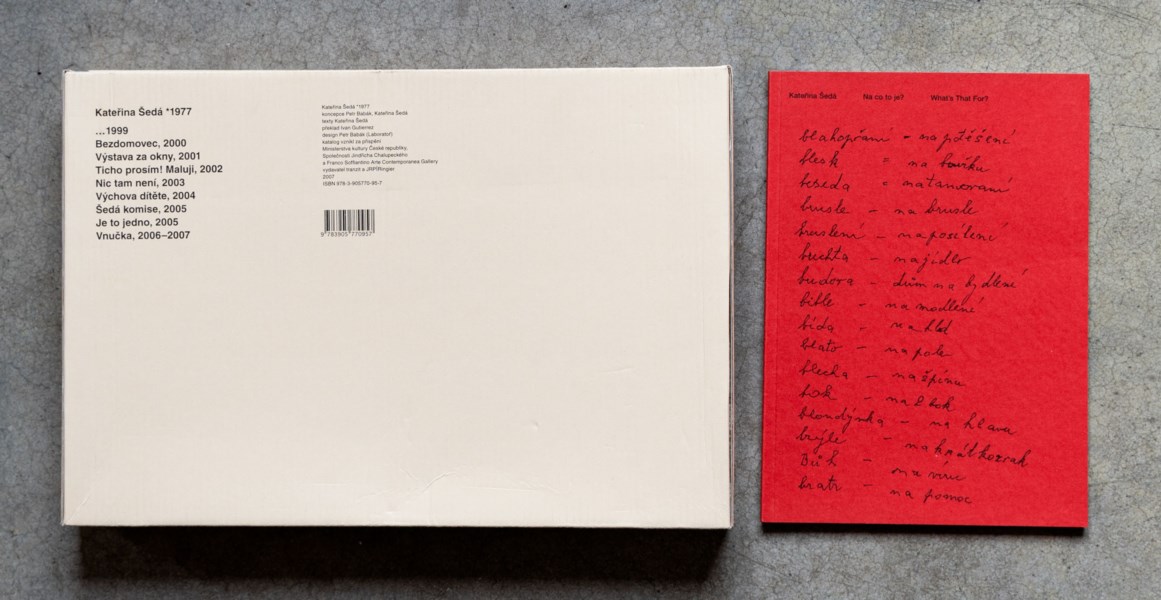 Kateřina Šedá *1977
...1999
Bezdomovec, 2000
Výstava za okny, 2001
Ticho prosím! Maluji, 2002
Nic tam není, 2003
Výchova dítěte, 2004
Šedá komise, 2005
Je to jedno, 2005
Vnučka, 2006–2007
Kateřina Šedá *1977
koncepce Petr Babák, Kateřina Šedá
texty Kateřina Šedá
překlad Ivan Gutierrez
design Petr Babák (Laboratoř)
katalog vznikl za přispění
Ministerstva kultury České republiky,
Společnosti Jindřicha Chalupeckého
a Franco Soffiantino Arte Contemporanea Gallery
vydavatel tranzit a JRP|Ringier
2007
ISBN 978-3-905770-95-7
9 783905 770957
Kateřina Šedá Na co to je? What's That For?
blahopřání = na potěšení
blesk = na bouřku
beseda =
brusle – na brusle
bruslení – na posílení
buchta – na jídlo
budova – dům na bydlení
bible – na modlení
bída – na hlad
bláto – na pole
blecha – na špínu
bok – na bok
blondýnka – na hlava
brýle – na krátkozrak
Bůh – na víru
bratr – na pomoc